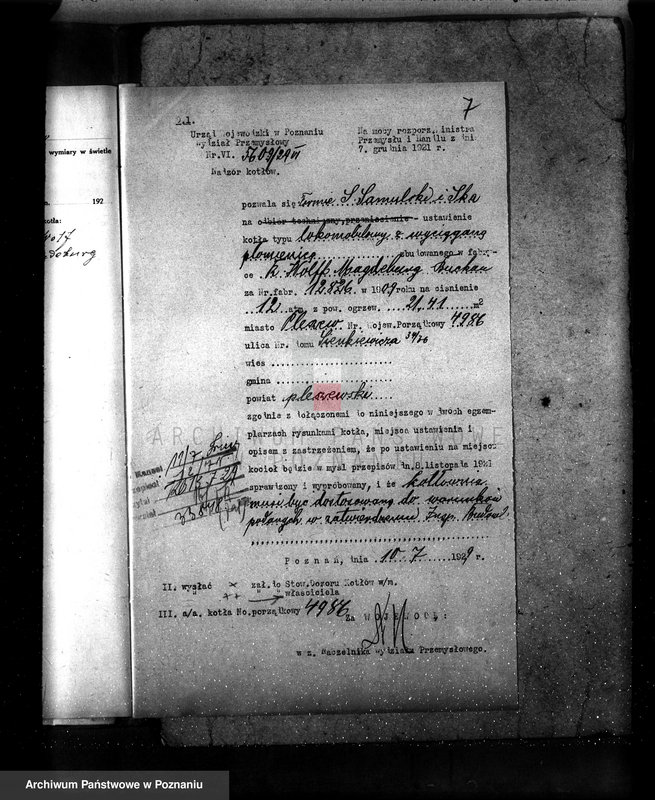 7
Urząd Wojewódzki w Poznaniu
Wydział Przemysłowy
Nr.VI. 5609/29 VI
Nadzór kotłów.
Na mocy rozporz. Ministra
Przemysłu i Handlu z dni.
7. grudnia 1921 r.
wymiary w świetle
192
kotła:
pozwala się firmie S. Samulski i Ska
na odbiór techniczny, przeniesienie - ustawienie
kotła typu lokomobilowy z wyciąganą
płomienicą zbudowanego w fabry-
ce R. Wolff Magdeburg Buckau
za Nr.fabr. 12826 w 1909 roku na ciśnienie
12 atm. z pow. ogrzew. 21.41 m2
miasto Pleszew Nr. Wojew.Porządkowy 4986
ulica Nr. domu Sienkiewicza
wieś
gmina
powiat pleszewski
zgodnie z dołączonemi do niniejszego w dwóch egzem-
plarzach rysunkami kotła, miejsca ustawienia i
opisem z zastrzeżeniem, że po ustawieniu na miejscu
kocioł będzie w myśl przepisów dn.8.listopada 1921
sprawdzony i wypróbowany, i że kotłownia
musi być dostosowana do warunków
podanych w zatwierdzeniu Insp. Budowl.
Poznań, dnia 10 7 1929 r.
II. wysłać × zał. do Stow.Dozoru Kotłów w/m.
" ++ " właściciela
III. a/a. kotła No.porządkowy 4986
Za WOJEWODĘ:
w z. Naczelnika Wydziału Przemysłowego.
ARCHIWUM PAŃSTWOWE
W POZNANIU
Archiwum Państwowe w Poznaniu